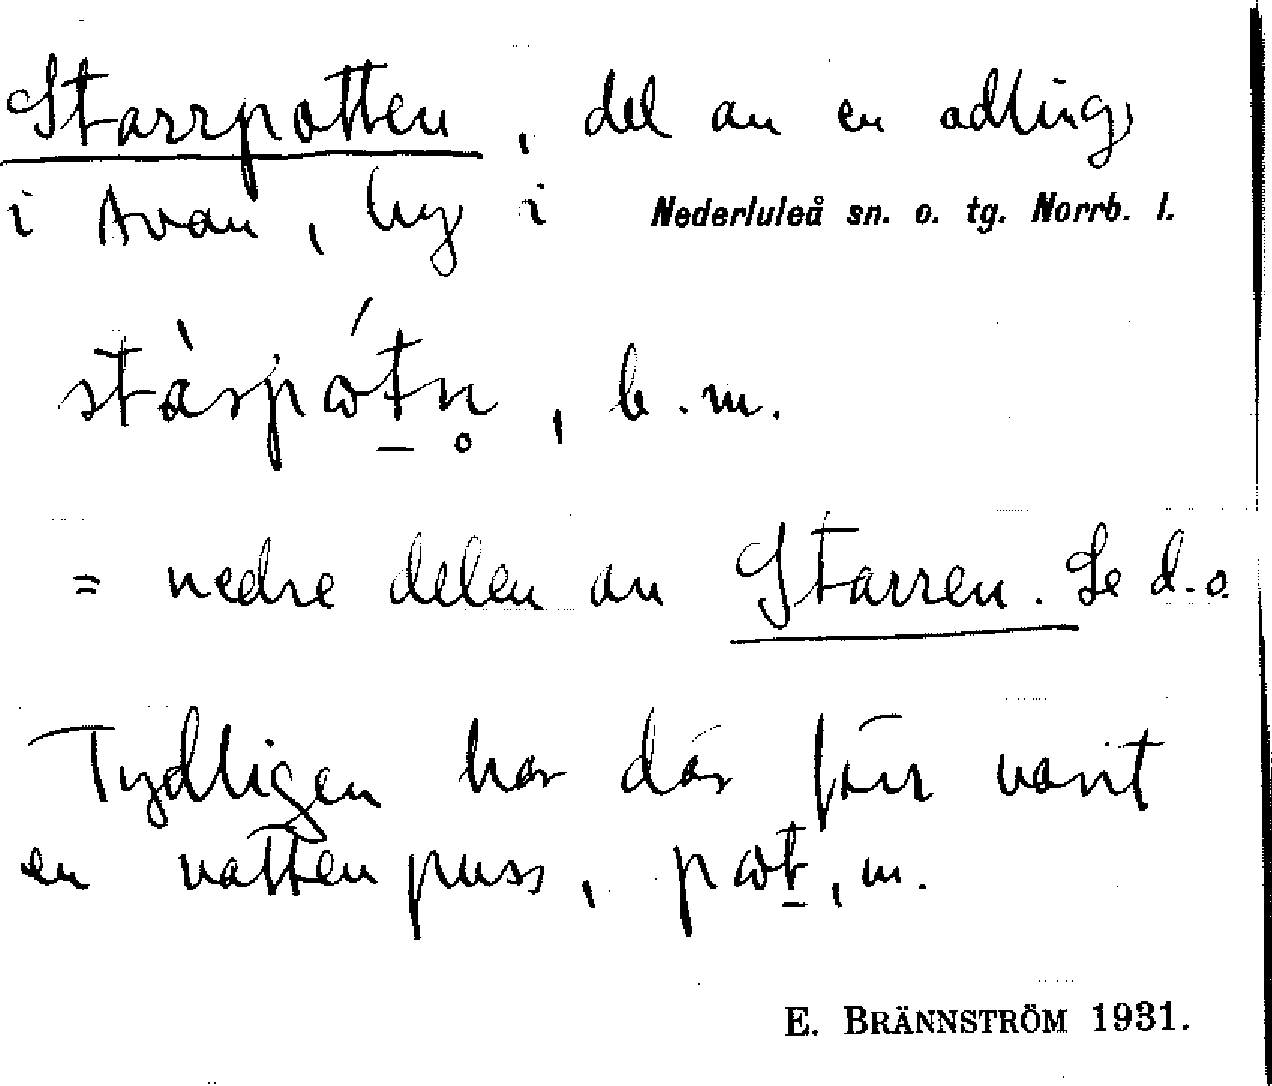 Starrpotten, del av en odling
i Avan, by i Nederluleå sn. o. tg. Norrb. l.
stàrpɷ́t̲n̥, b.m.
= nedre delen av Starren. Se d.o.
Tydligen har där förr varit
en vattenpuss, pɷt̲, m.
E. BRÄNNSTRÖM 1931.